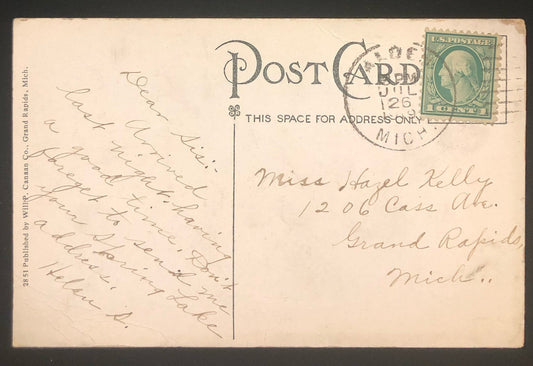 POST CARD
THIS SPACE FOR ADDRESS ONLY
U.S. POSTAGE
CENTS
ALDEN
PM
JUL
26
MICH.
2851 Published by Will P. Canaan Co., Grand Rapids, Mich.
Dear Sis:-
Arrived
last night. having
a good time. Don't
forget to send me
your Spring Lake
address.
Helen S.
Miss Hazel Kelly
1206 Cass Ave.
Grand Rapids,
Mich..